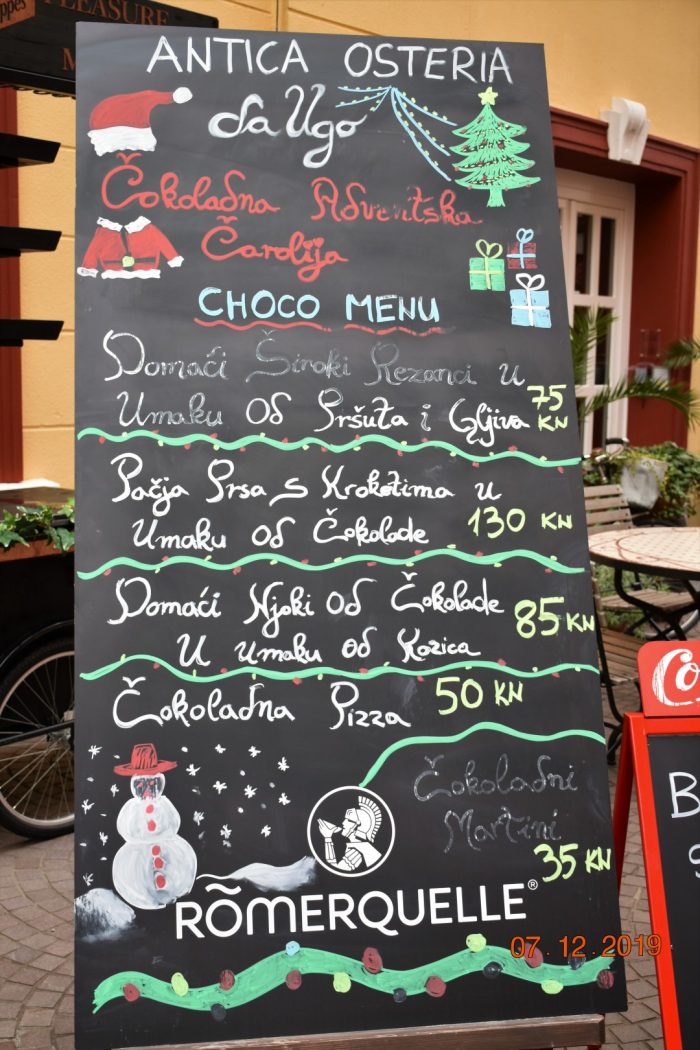 PLEASURE
ANTICA OSTERIA
da Ugo
Čokoladna Adventska
Čarolija
CHOCO MENU
Domaći Široki Rezanci u
Umaku od Pršuta i Gljiva 75 KN
Pačja Prsa s Kroketima u
Umaku od Čokolade 130 KN
Domaći Njoki od Čokolade
U umaku od Kozica 85 KN
Čokoladna Pizza 50 KN
Čokoladni
Martini
35 KN
RÕMERQUELLE®
07.12.2019